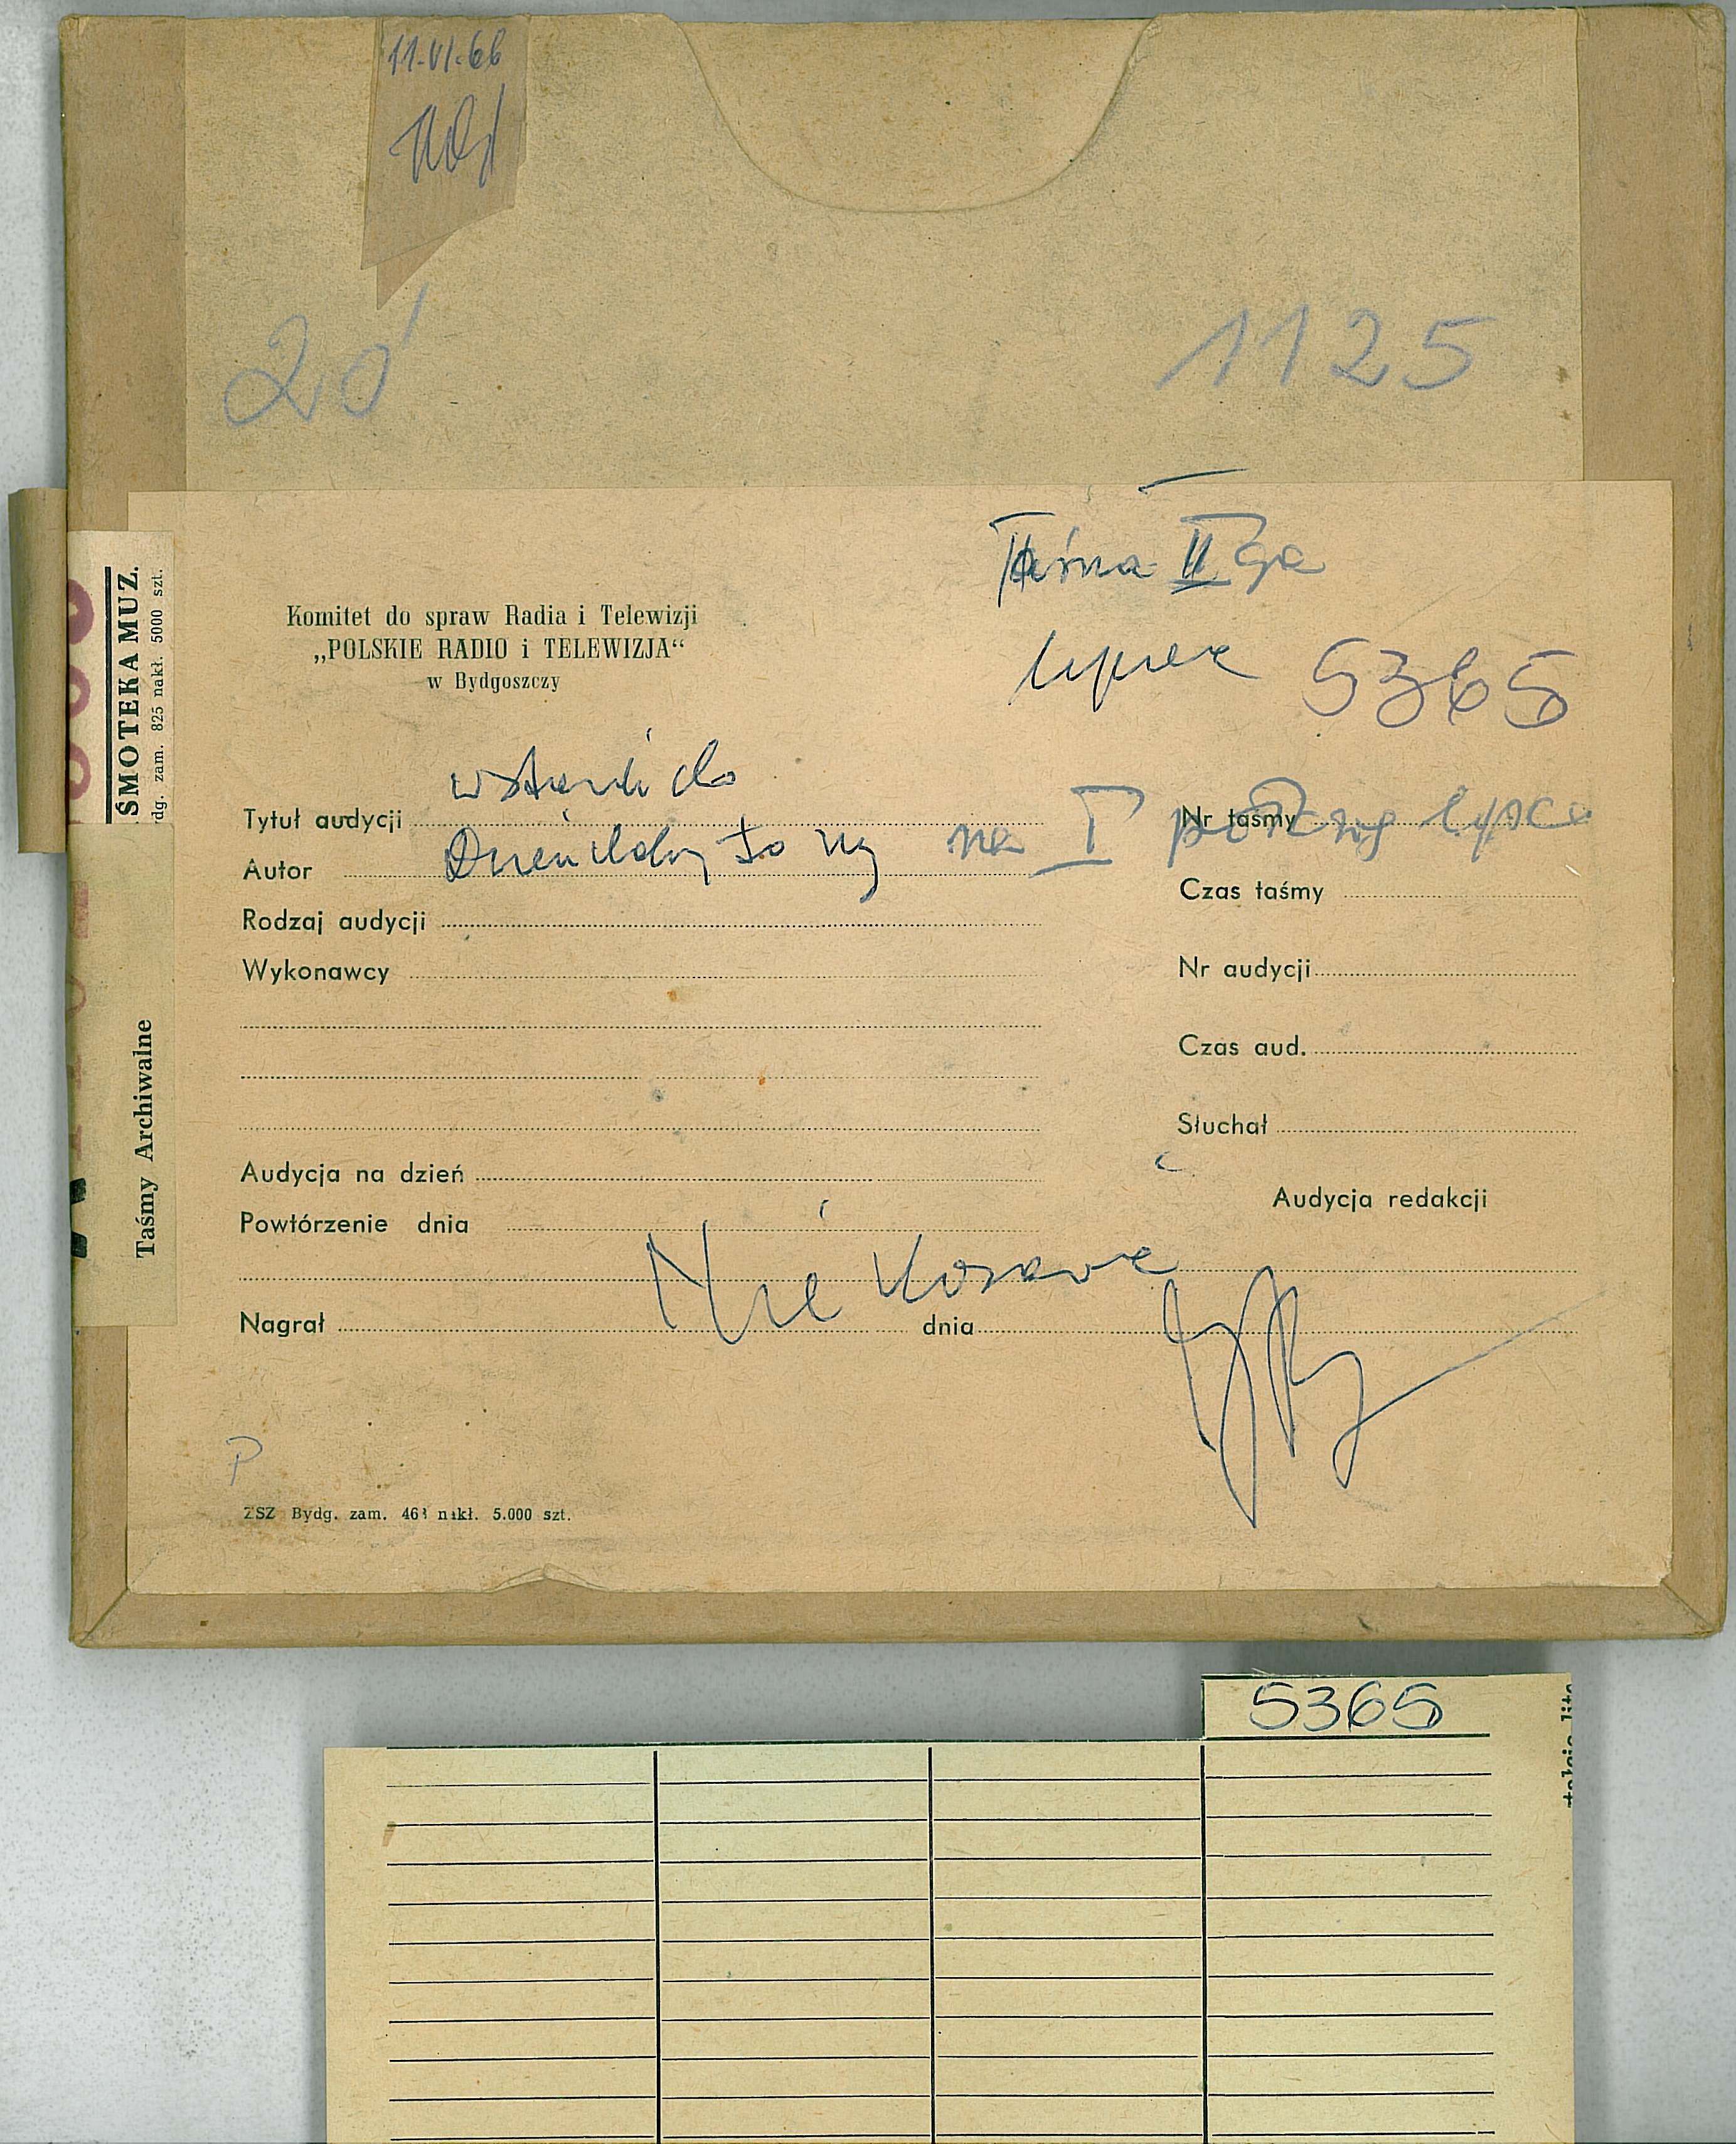 11-VI-66
20'
1125
Taśma II ga
lipiec 5365
Komitet do spraw Radia i Telewizji
„POLSKIE RADIO i TELEWIZJA“
w Bydgoszczy
wstawki do
Tytuł audycji
Nr taśmy
Dzień dobry to my na I połowę lipca
Autor
Czas taśmy
Rodzaj audycji
Wykonawcy
Nr audycji
Czas aud.
Słuchał
Audycja na dzień
Audycja redakcji
Powtórzenie dnia
Nie kasować
Nagrał
dnia
P
ZSZ Bydg. zam. 463 nakł. 5.000 szt.
ŚMOTEKA MUZ.
ydg. zam. 825 nakł. 5000 szt.
Taśmy Archiwalne
5365